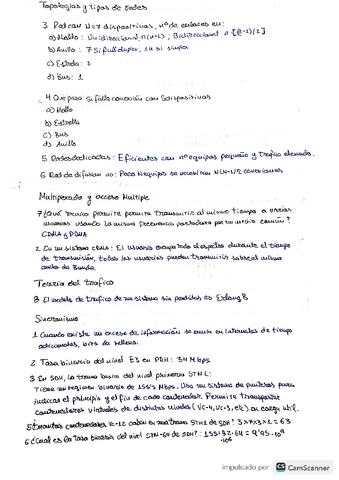 Topologías y tipos de redes
3. Red con N=7 dispositivos, nº de enlaces en:
a) Malla: Unidireccional, n(n-1); Bidireccional n·[(n-1)/2]
b) Anillo: 7 Si full duplex, 14 si simplex
c) Estrella: 7
d) Bus: 1
4. Que pasa si falla conexión con 5 dispositivos
a) Malla
b) Estrella
c) Bus
d) Anillo
5. Redes dedicadas: Eficientes con nº equipos pequeño y tráfico elevado.
6. Red de difusión no: Para N equipos se necesitan N(N-1)/2 conexiones
Multiplexado y acceso Múltiple
7 ¿Qué técnica permite transmitir al mismo tiempo a varios
usuarios usando la misma frecuencia portadora por un medio común?
CDMA y
2. En un sistema CDMA: El usuario ocupa todo el espectro durante el tiempo
de transmisión, todos los usuarios pueden transmitir sobre el mismo
ancho de Banda.
Teoría del tráfico
8 El modelo de tráfico de un sistema sin perdidas es Erlang B
Sincronismo
1. Cuando existe un exceso de información se envia en intervalos de tiempo
adicionales, bits de relleno.
2. Tasa binaria del nivel E3 en PDH: 34 Mbps
3. En SDH, la trama básica del nivel primario STM-1:
Tiene un régimen binario de 155'5 Mbps. Usa un sistema de punteros para
indicar el principio y el fin de cada contenedor. Permite transportar
contenedores virtuales de distintos niveles (VC-4, VC-3, etc) en carga útil.
5 ¿Cuántos contenedores VC-12 caben en una trama STM1 de SDH? 3×7×3×1 = 63
6 ¿Cuál es la tasa binaria del nivel STM-64 de SDH?: 155'52·64 = 9'95·10⁹
·10⁶
impulsado por CS CamScanner